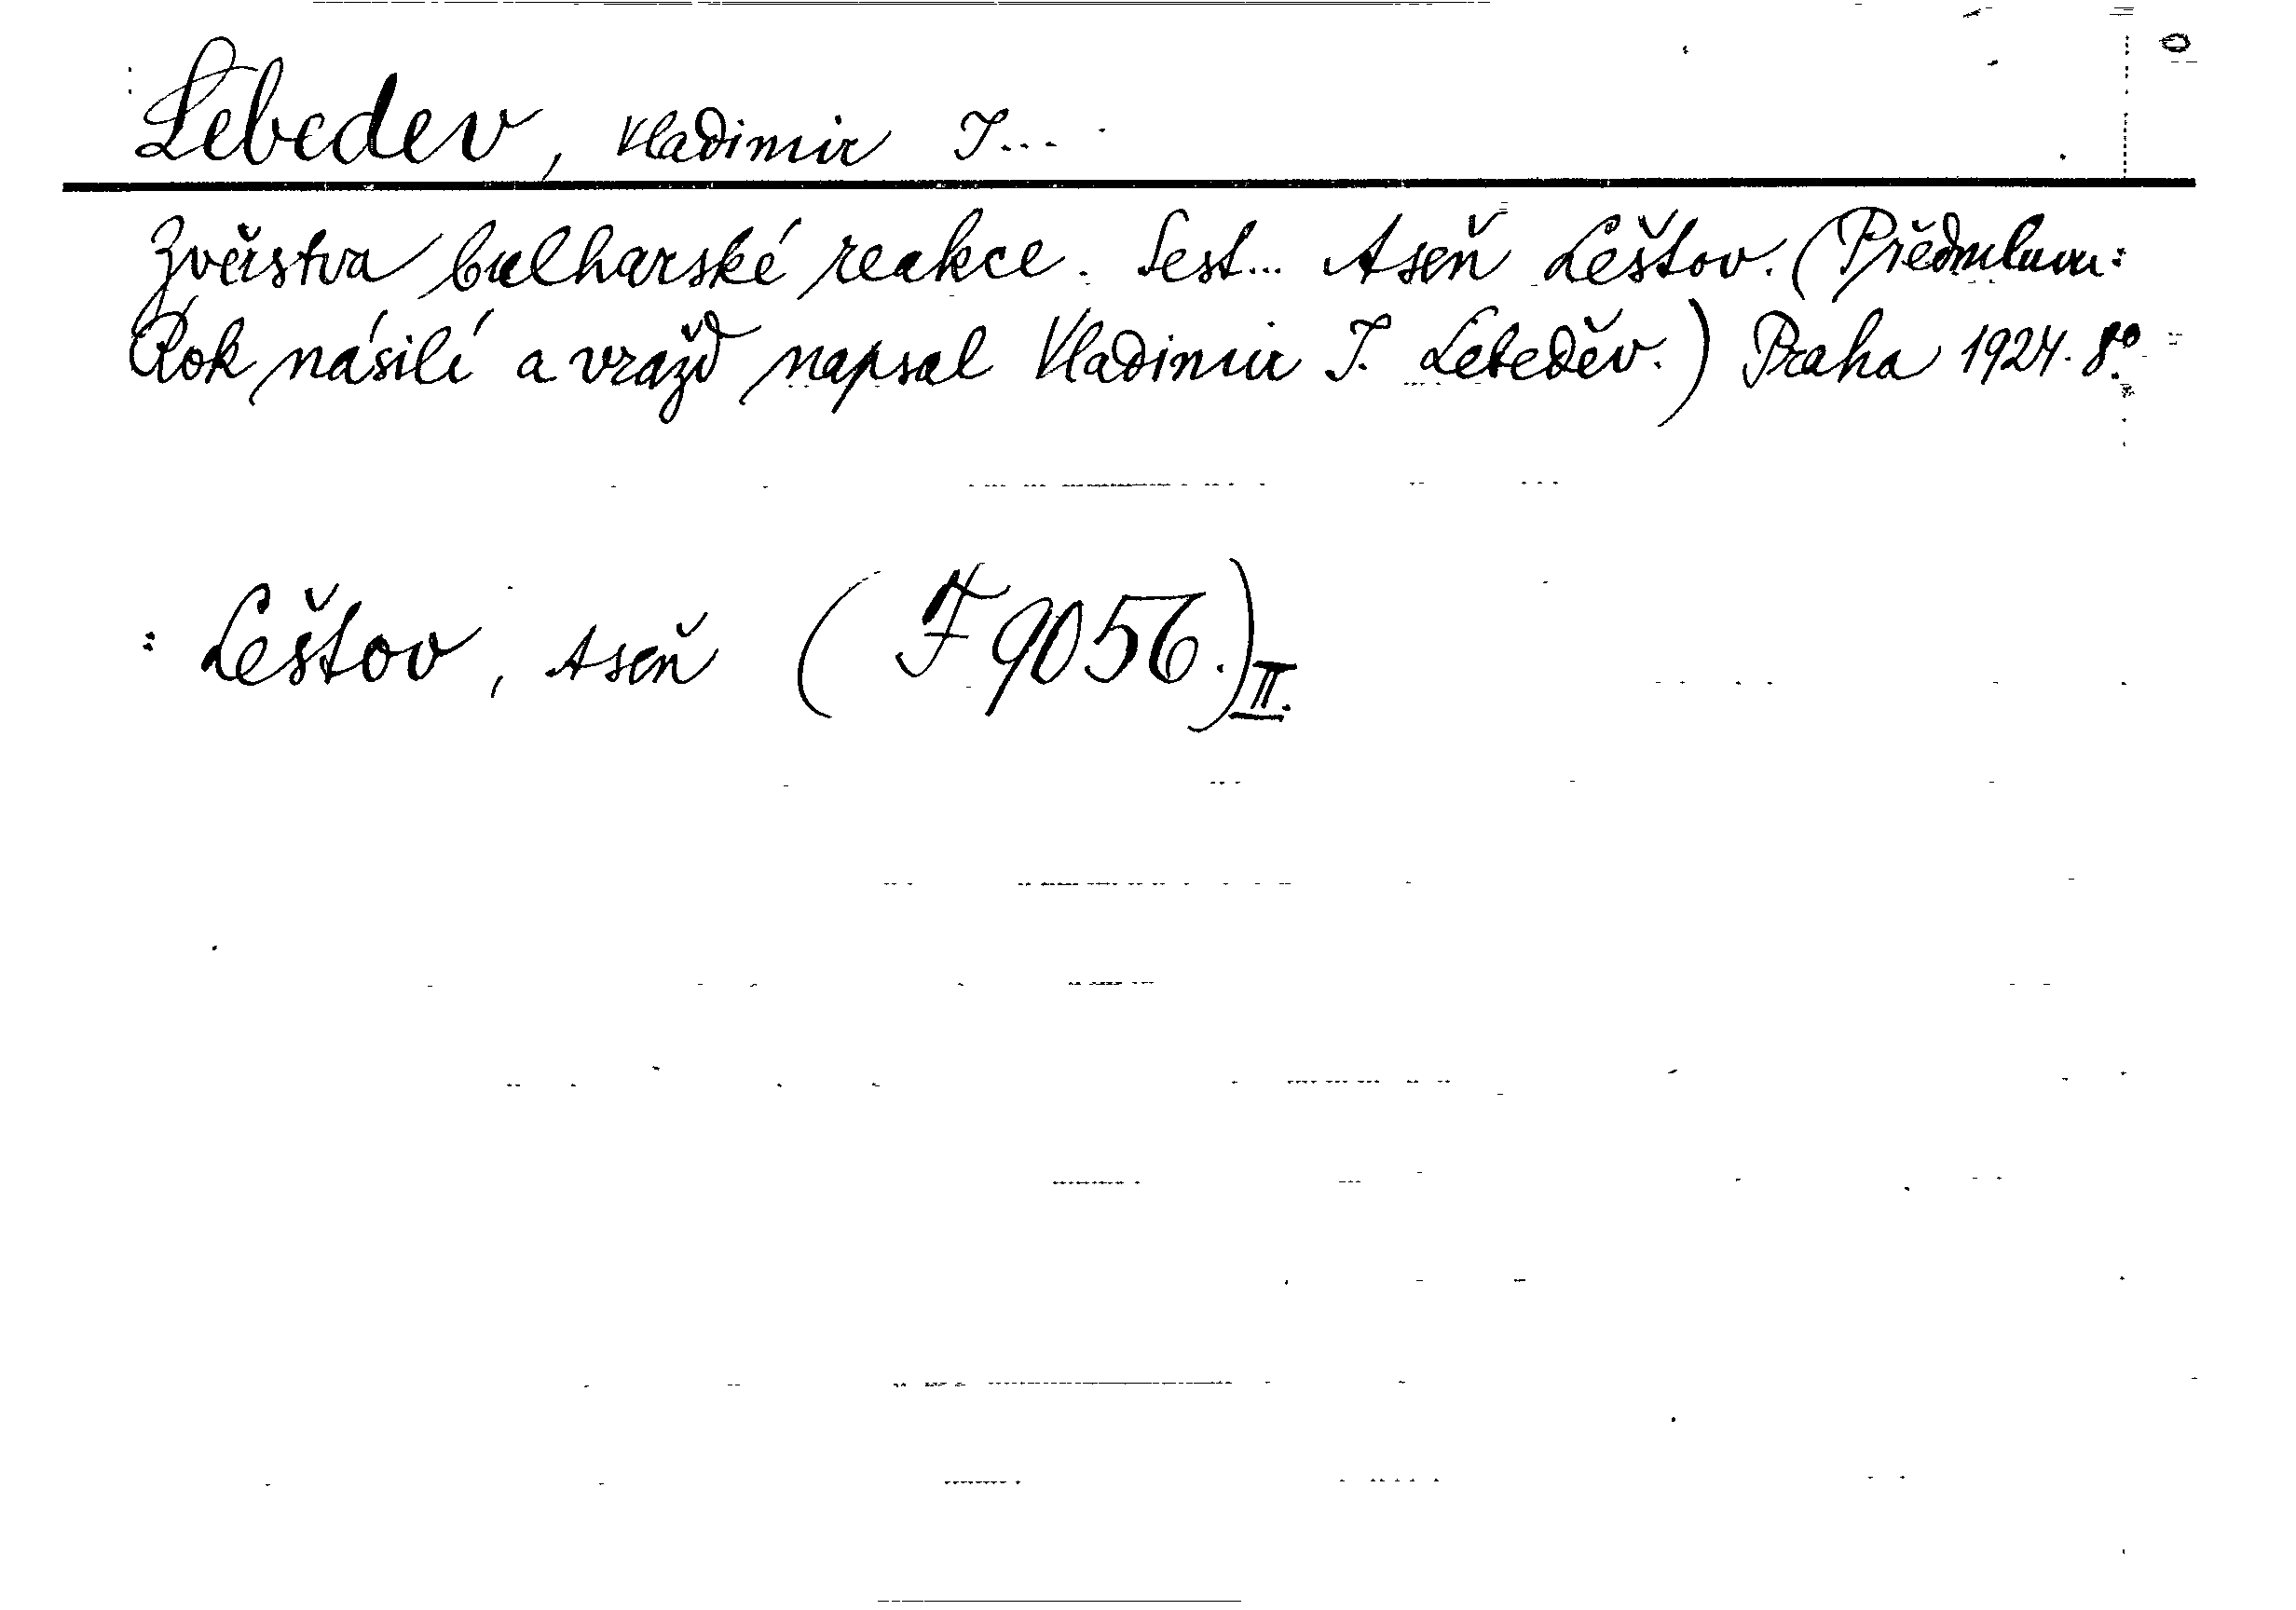 Lebedev, Vladimir I...
Zvěrstva bulharské reakce. Sest... Aseň Leštov. (Předmluva:
Rok násilí a vražd napsal Vladimir I. Lebeděv.) Praha 1924. 8°.
: Leštov, Aseň (F 9056.) II.